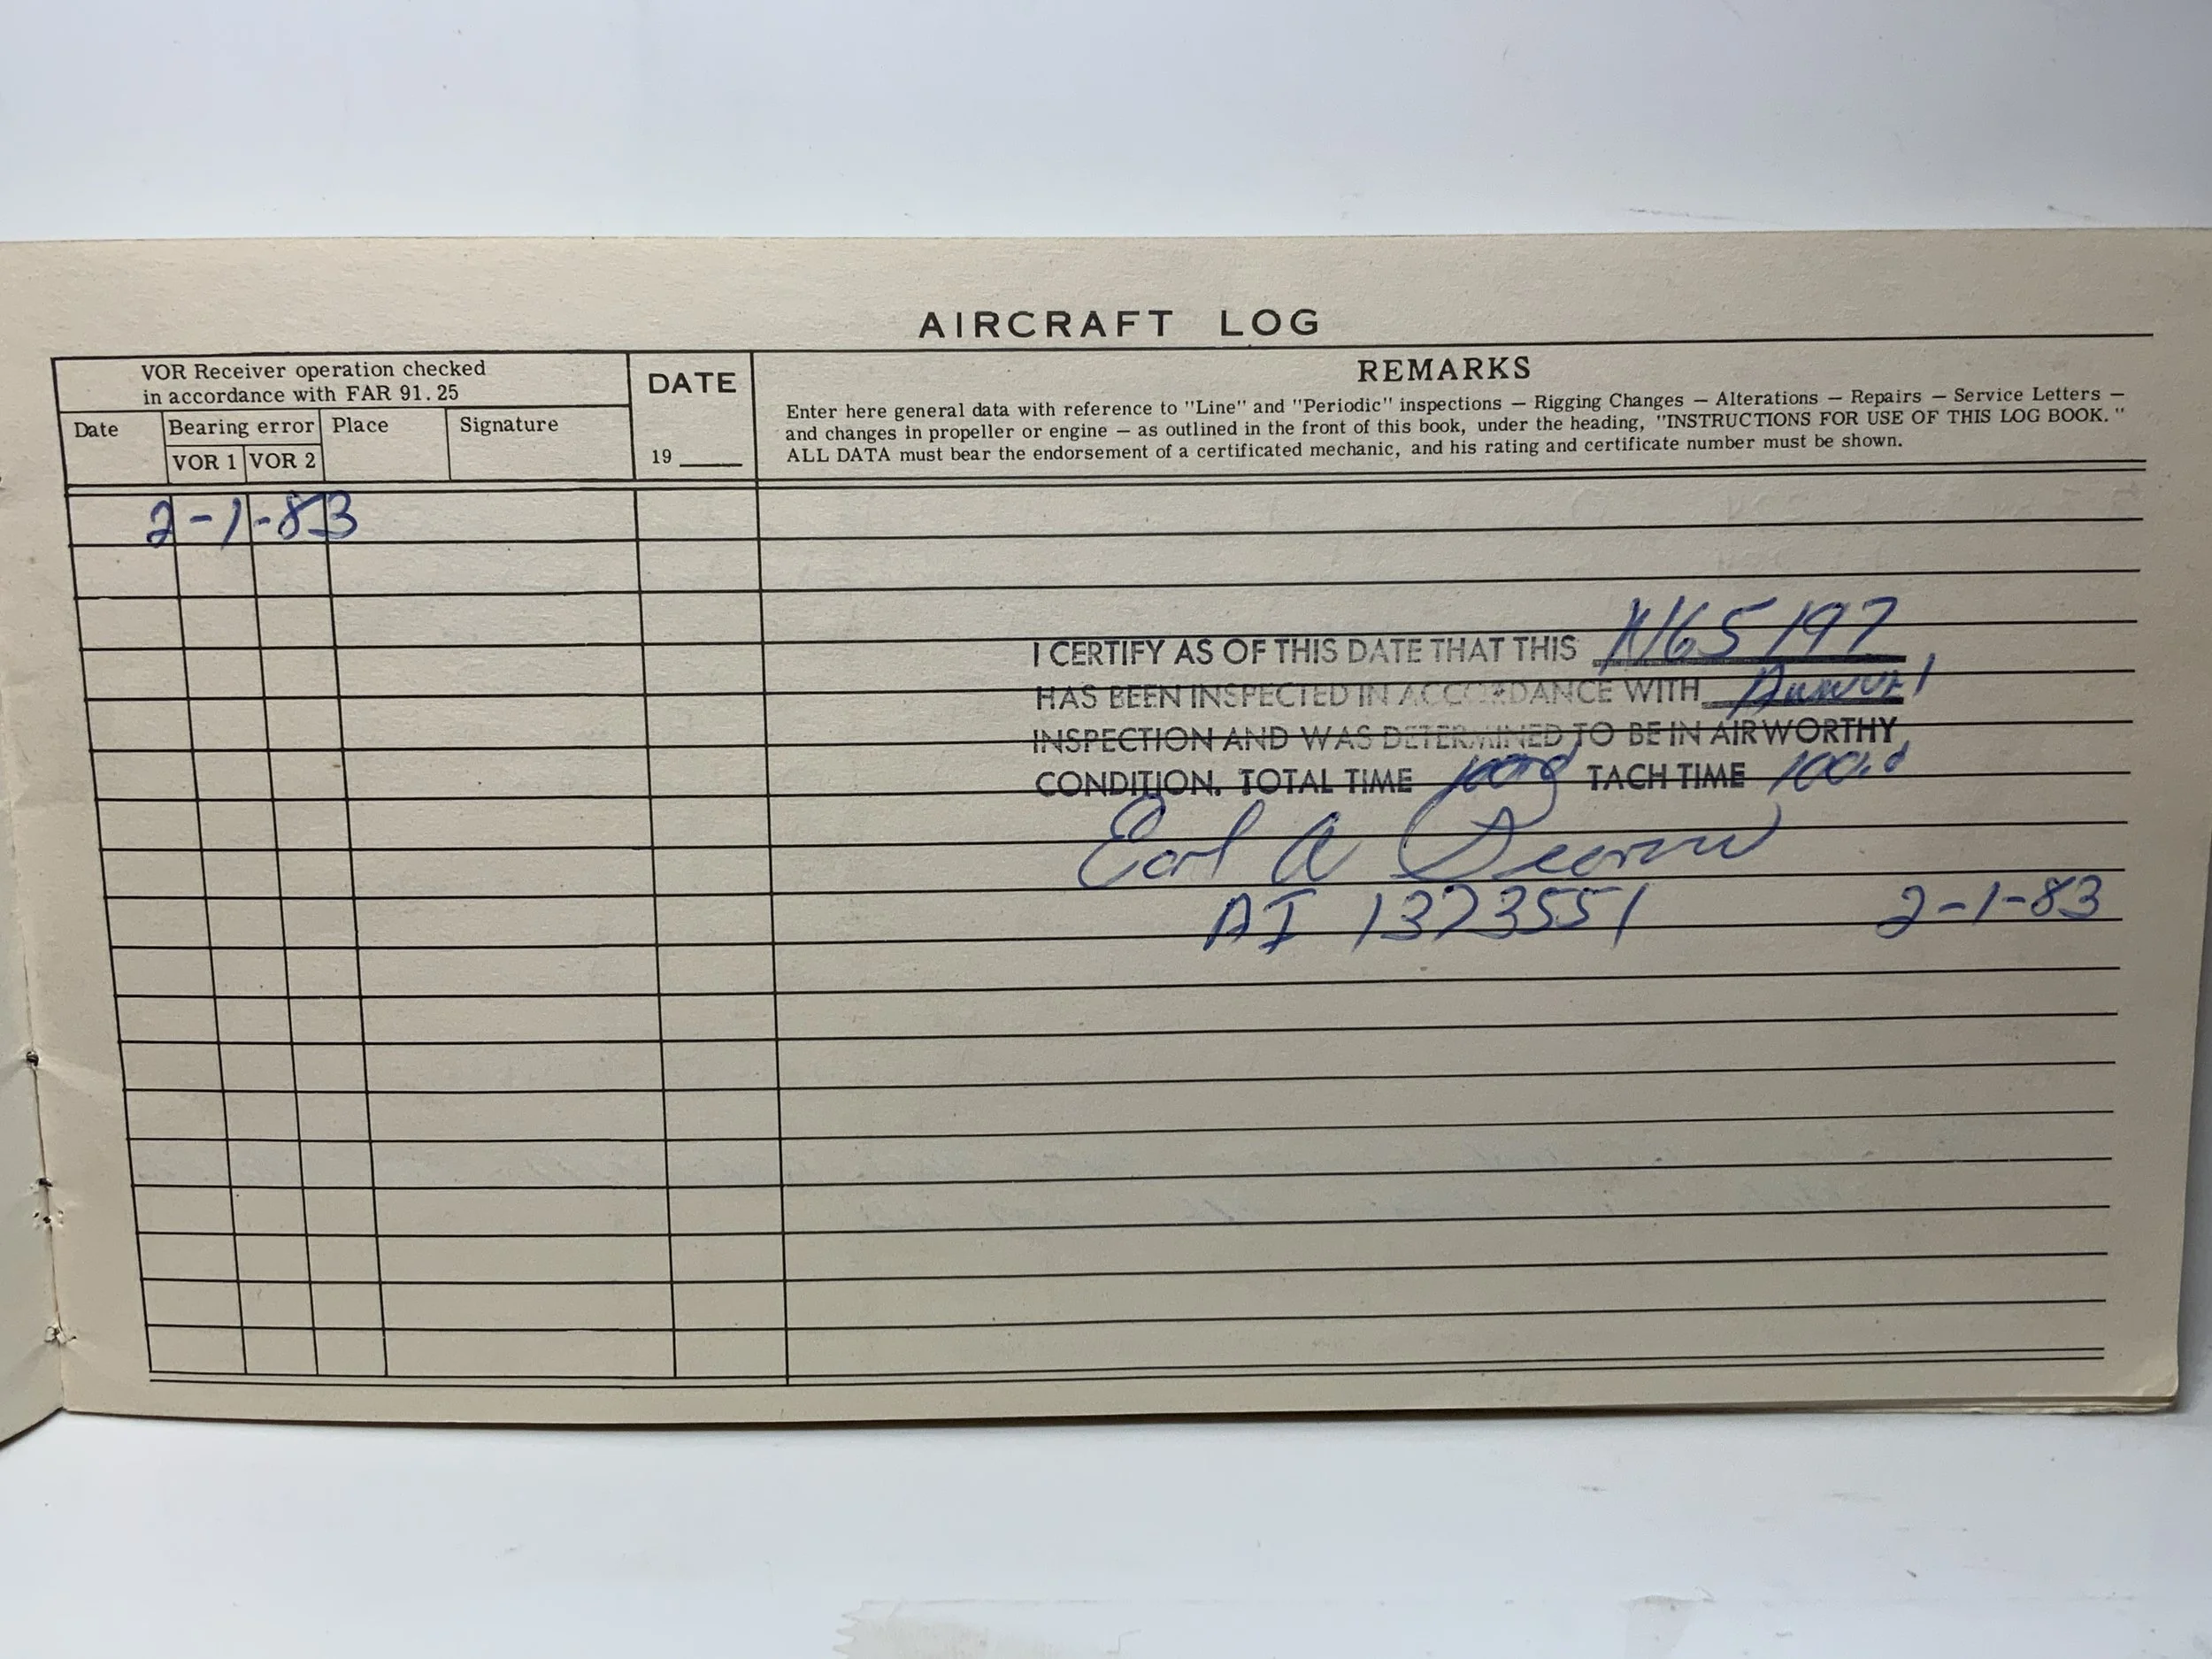 AIRCRAFT LOG
VOR Receiver operation checked
in accordance with FAR 91.25
DATE
REMARKS
Enter here general data with reference to "Line" and "Periodic" inspections — Rigging Changes — Alterations — Repairs — Service Letters —
and changes in propeller or engine — as outlined in the front of this book, under the heading, "INSTRUCTIONS FOR USE OF THIS LOG BOOK."
ALL DATA must bear the endorsement of a certificated mechanic, and his rating and certificate number must be shown.
Date
Bearing error
Place
Signature
VOR 1 VOR 2
19
2-1-83
I CERTIFY AS OF THIS DATE THAT THIS N65197
HAS BEEN INSPECTED IN ACCORDANCE WITH Annual
INSPECTION AND WAS DETERMINED TO BE IN AIRWORTHY
CONDITION. TOTAL TIME TACH TIME
Earl A
AI 1373551 2-1-83